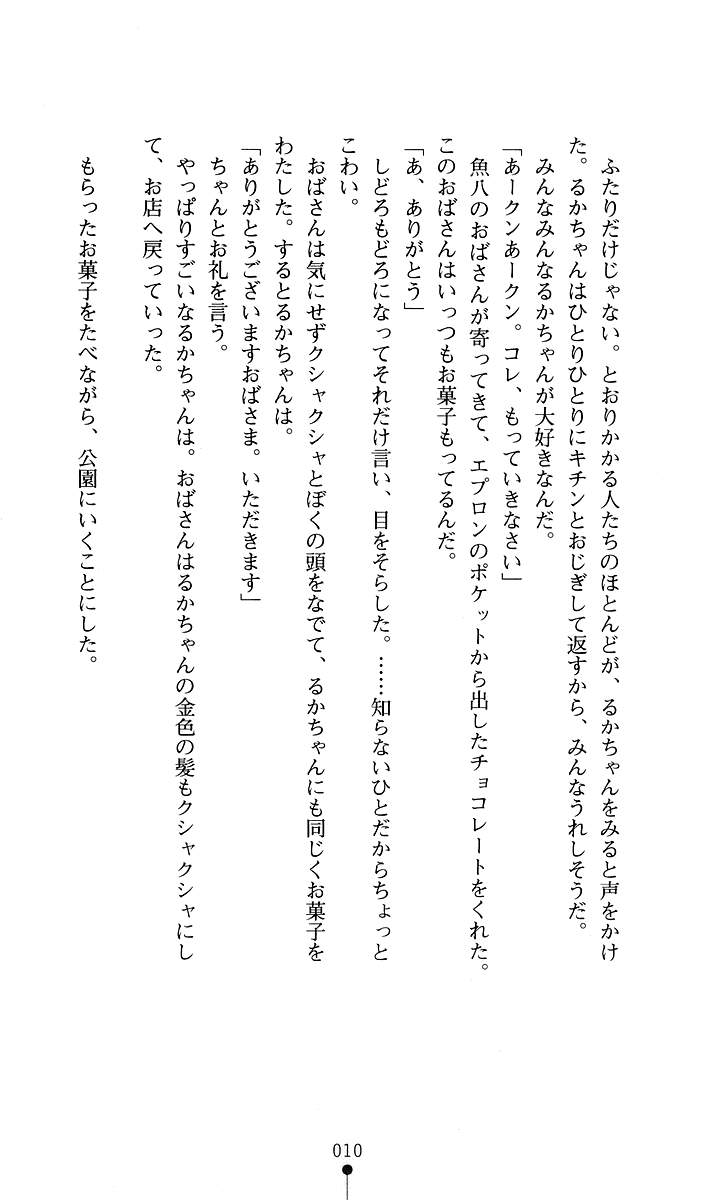 ふたりだけじゃない。とおりかかる人たちのほとんどが、るかちゃんをみると声をかけ
た。るかちゃんはひとりひとりにキチンとおじぎして返すから、みんなうれしそうだ。
　みんなみんなるかちゃんが大好きなんだ。
「あークンあークン。コレ、もっていきなさい」
　魚八のおばさんが寄ってきて、エプロンのポケットから出したチョコレートをくれた。
このおばさんはいっつもお菓子もってるんだ。
「あ、ありがとう」
　しどろもどろになってそれだけ言い、目をそらした。……知らないひとだからちょっと
こわい。
　おばさんは気にせずクシャクシャとぼくの頭をなでて、るかちゃんにも同じくお菓子を
わたした。するとるかちゃんは。
「ありがとうございますおばさま。いただきます」
　ちゃんとお礼を言う。
　やっぱりすごいなるかちゃんは。おばさんはるかちゃんの金色の髪もクシャクシャにし
て、お店へ戻っていった。
　もらったお菓子をたべながら、公園にいくことにした。
010